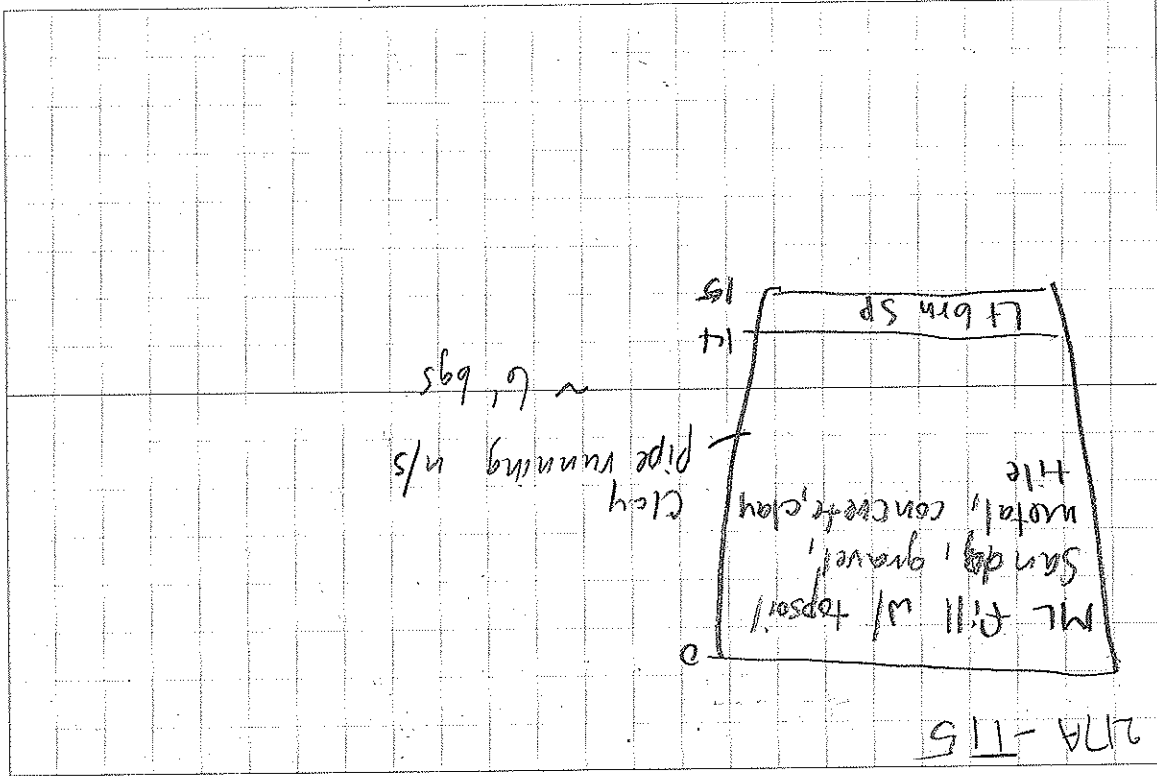 217A - TT5
0
ML fill w/ topsoil
Sandy, gravel,
metal, concrete, clay
tile
Clay
pipe running n/s
~ 6' bgs
14
Lt brn SP
15